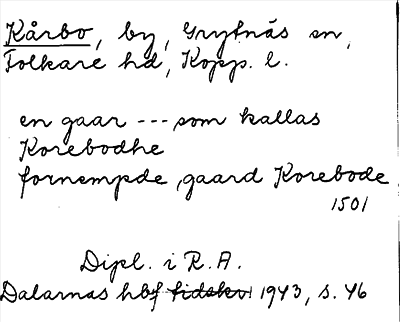 Kårbo, by, Grytnäs sn,
Folkare hd, Kopp. l.
en gaar --- som kallas
Korebodhe
fornempde gaard Korebode
1501
Dipl. i R.A.
Dalarnas hbf tidskr. 1943, s. 46